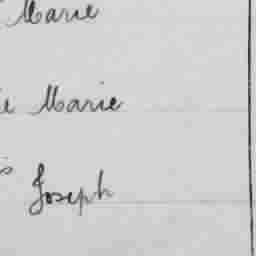 Marie
Marie
Joseph